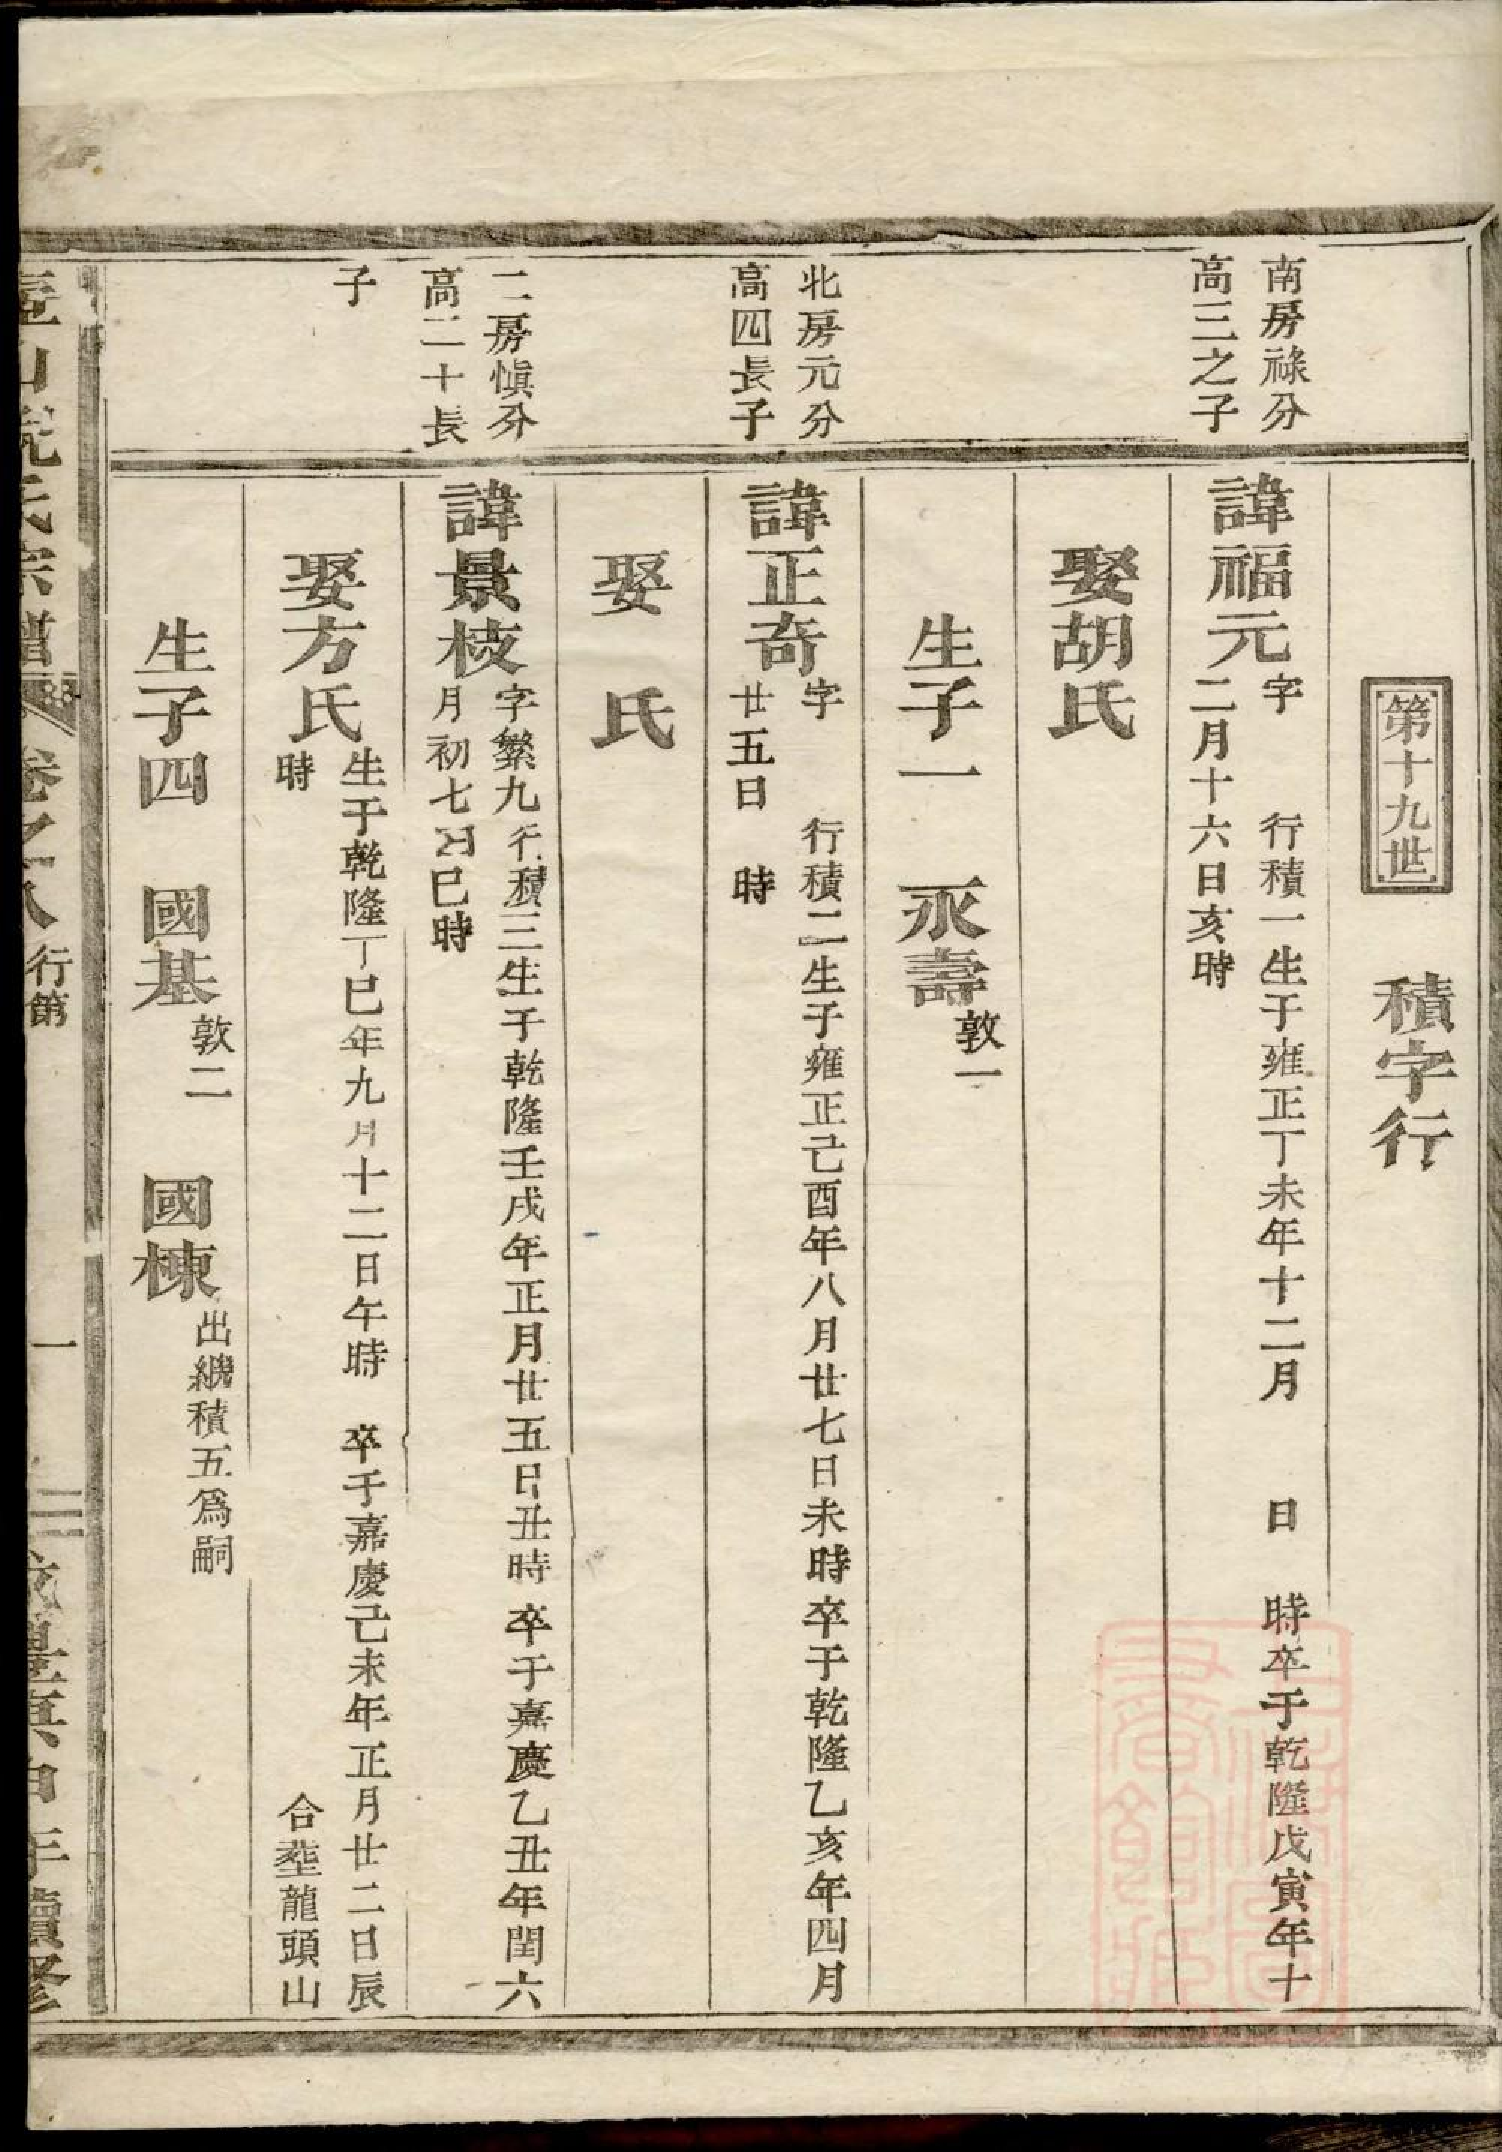 第十九世 積字行
南房祿分
高三之子
諱福元字 行積一生于雍正丁未年十二月 日 時卒于乾隆戊寅年十
二月十六日亥時
娶胡氏
生子一 永壽敦一
北房元分
高四長子
諱正奇字 行積二生于雍正己酉年八月廿七日未時卒于乾隆乙亥年四月
廿五日 時
娶 氏
二房慎分
高二十長
子
諱景枝字繁九行積三生于乾隆壬戌年正月廿五日丑時卒于嘉慶乙丑年閏六
月初七日巳時
娶方氏生于乾隆丁巳年九月十二日午時 卒于嘉慶己未年正月廿二日辰
時 合塟龍頭山
生子四 國基敦二 國棟出繼積五爲嗣
山 氏宗譜 卷之八 行第 一 咸豐庚申年續修